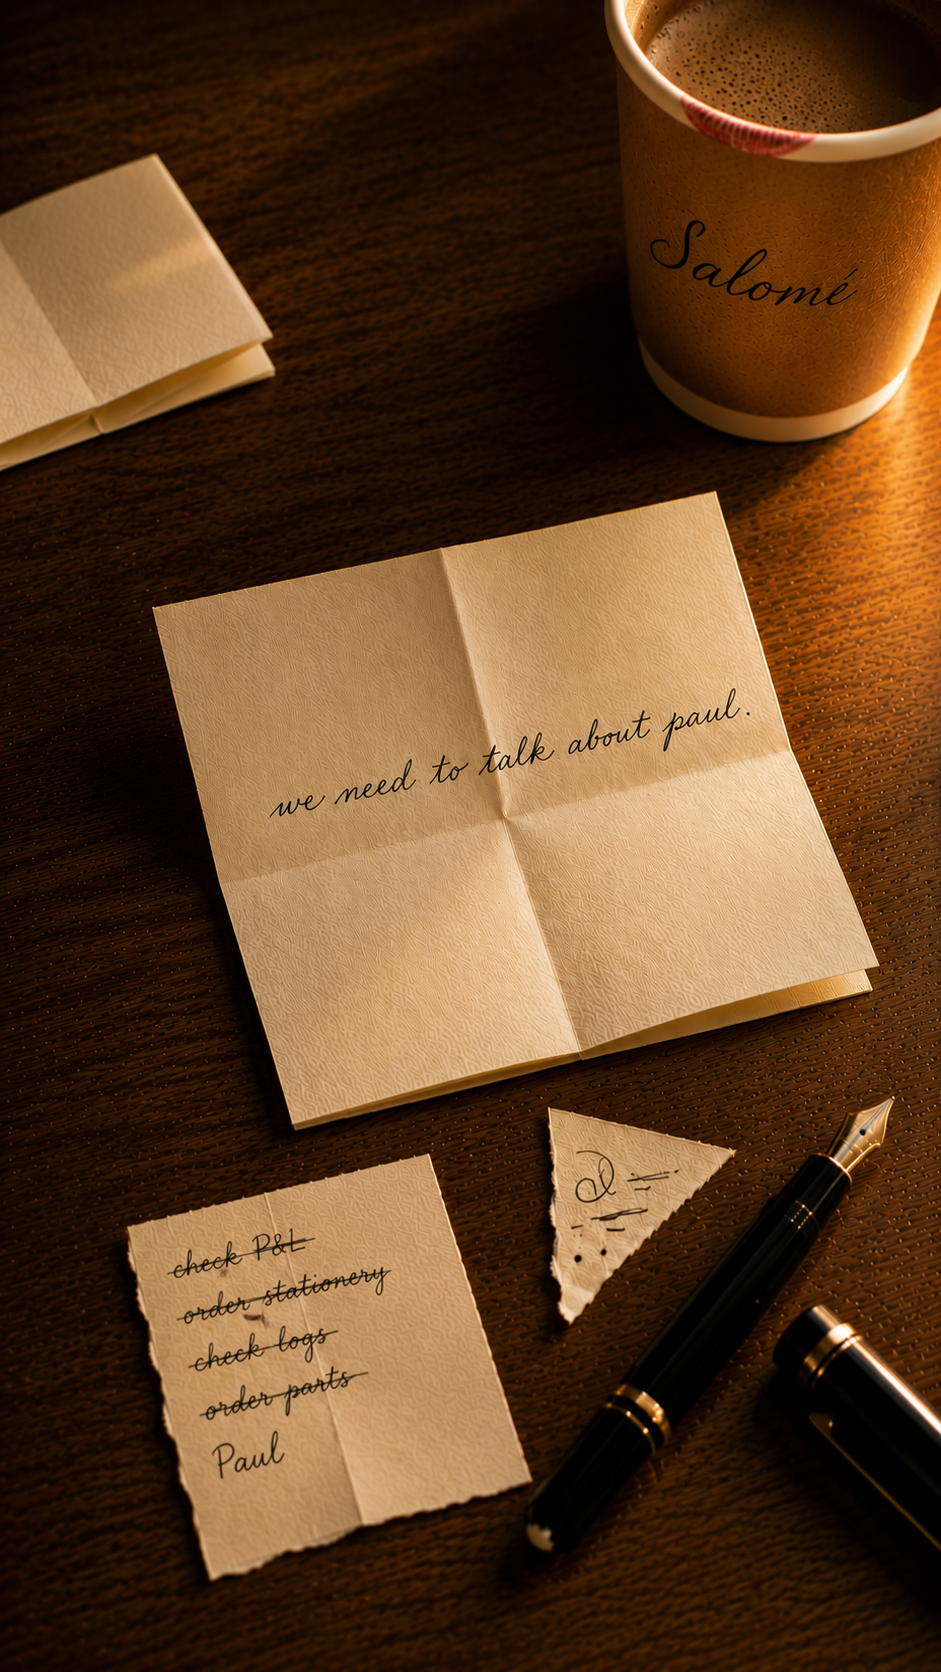 Salomé
we need to talk about paul.
check P&L
order stationery
check logs
order parts
Paul